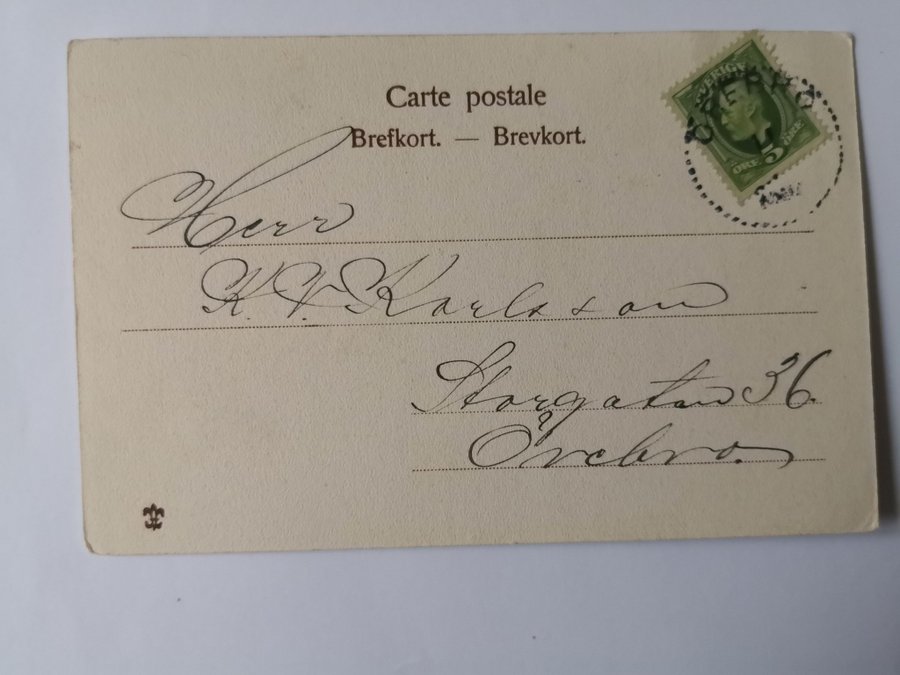 Carte postale
Brefkort. — Brevkort.
SVERIGE
5
ÖRE ÖRE
Herr
K. V. Karlsson
Storgatan 36.
Örebro.